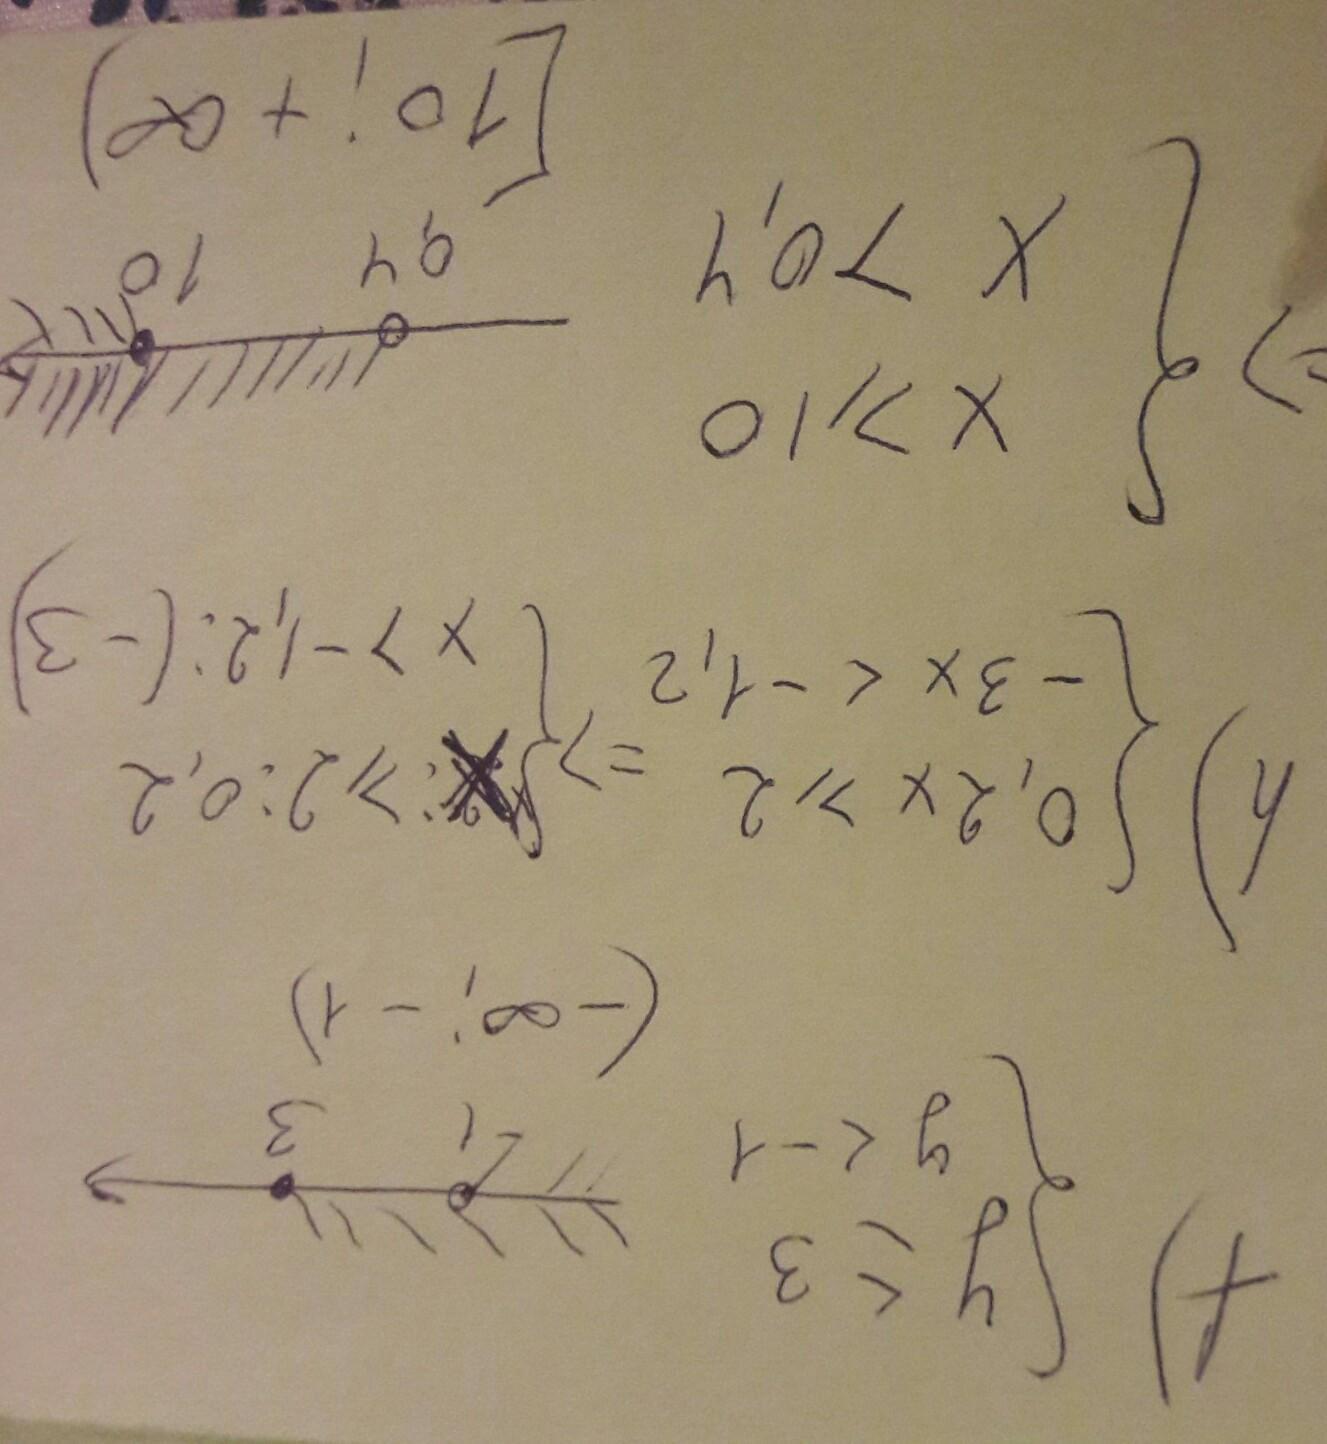 f)
{ y ≤ 3
y < -1
-1 3
(-∞; -1)
h)
{ 0,2x ⩾ 2 => { x ⩾ 2:0,2
-3x < -1,2 x > -1,2:(-3)
=> { x ⩾ 10
x > 0,4
0,4 10
[10; +∞)